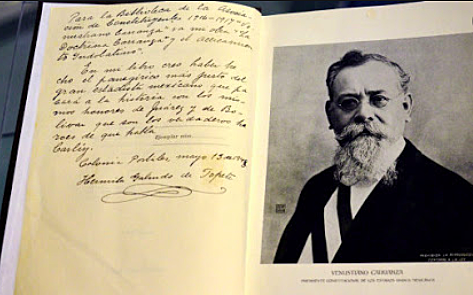 Para la Biblioteca de la Asocia-
ción de Constituyentes 1916-1917 "Ve-
nustiano Carranza" va mi obra "La
Doctrina Carranza" y el acercamien-
to Indolatino".
En mi libro creo haber he-
cho el panegírico más justo del
gran estadista mexicano que pa-
sará a la historia con los mis-
mos honores de Juárez y de Bo-
lívar que son los verdaderos hé-
roes de que habla
Carlyle.
Ejemplar núm.
Colonia Portales mayo 13 de
Hermila Galindo de Topete
VENUSTIANO CARRANZA
PRESIDENTE CONSTITUCIONAL DE LOS ESTADOS UNIDOS MEXICANOS
PROHIBIDA LA REPRODUCCIÓN
CONFORME A LA LEY